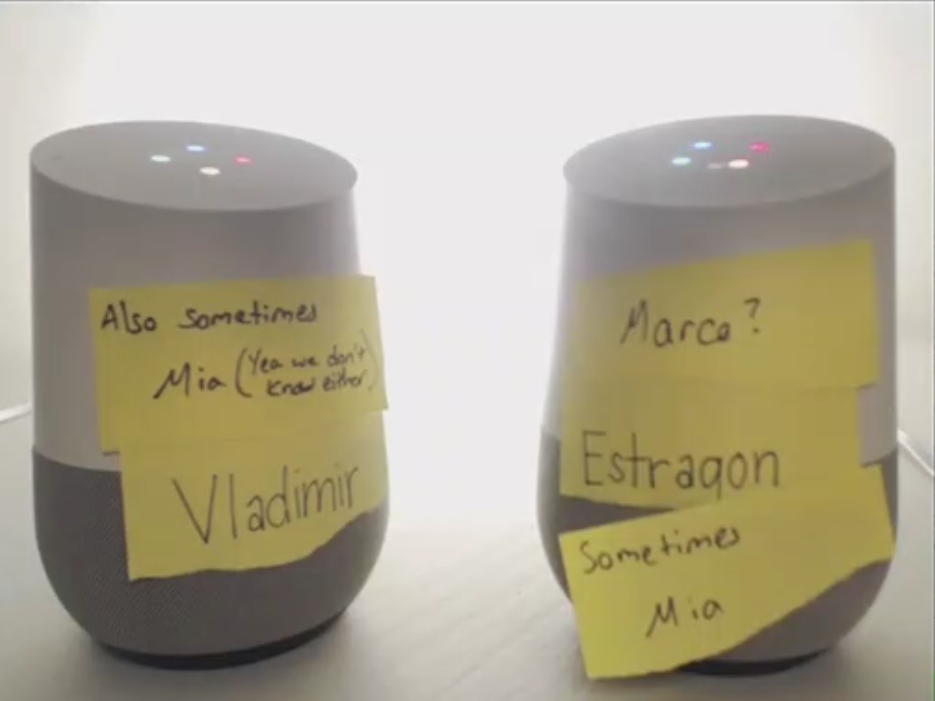 Also sometimes
Mia (Yea we don't
know either)
Vladimir
Marco?
Estragon
Sometimes
Mia